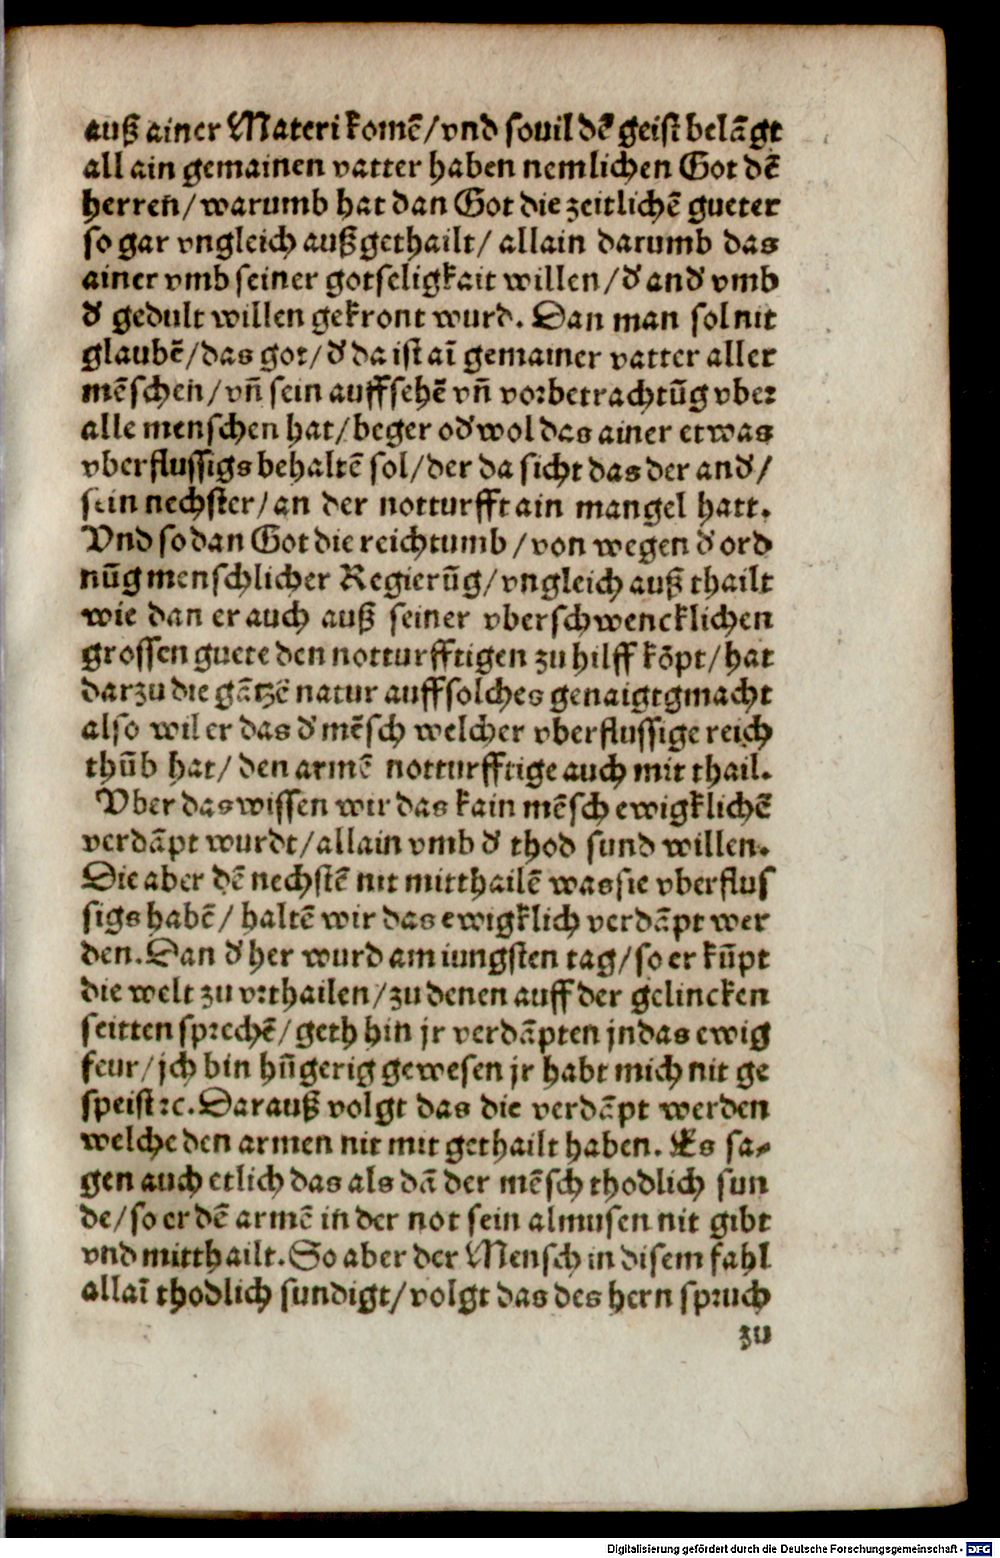 auß ainer Materi komē/vnd souil dē geist belāgt
all ain gemainen vatter haben nemlichen Got dē
herren̄/warumb hat dan Got die zeitlichē gueter
so gar vngleich auß gethailt/ allain darumb das
ainer vmb seiner gotseligkait willen/d' and' vmb
d' gedult willen gekront wurd. Dan man sol nit
glaubē/das got/d' da ist aī gemainer vatter aller
mēschen/vn̄ sein auffsehē vn̄ vorbetrachtūg vber
alle menschen hat/beger od' wol das ainer etwas
vberflussigs behaltē sol/der da sicht das der and'/
sein nechster/an der notturfft ain mangel hatt.
Vnd so dan Got die reichtumb/von wegen d' ord
nūg menschlicher Regierūg/vngleich auß thailt
wie dan er auch auß seiner vberschwencklichen
grossen guete den notturfftigen zu hilff kōpt/hat
darzu die gātzē natur auff solches genaigt gmacht
also wil er das d' mēsch welcher vberflussige reich
thūb hat/ den armē notturfftige auch mit thail.
Vber das wissen wir das kain mēsch ewigklichē
verdāpt wurdt/allain vmb d' thod sund willen.
Die aber dē nechstē nit mitthailē was sie vberflus
sigs habē/ haltē wir das ewigklich verdāpt wer
den. Dan d' her wurd am iungsten tag/so er kūpt
die welt zu vrthailen/zu denen auff der gelincken
seitten sprechē/geth hin jr verdāpten jn das ewig
feur/jch bin hūgerig gewesen jr habt mich nit ge
speist ꝛc. Darauß volgt das die verdāpt werden
welche den armen nit mit gethailt haben. Es sa⸗
gen auch etlich das als dā der mēsch thodlich sun
de/so er dē armē in der not sein almusen nit gibt
vnd mitthailt. So aber der Mensch in disem fahl
allaī thodlich sundigt/volgt das des hern spruch
zu
Digitalisierung gefördert durch die Deutsche Forschungsgemeinschaft - DFG